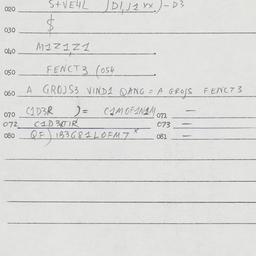 020 S+VE4L )D1,J1 XX.)-D3
030 $
040 M1Z1,Z1
050 FENCT3 (054
060 A GROJS3 VIND1 QANG = A GROJS FENCT3
070 C1D3R )= C1M0F1N1M 071 —
072 C1D3T1R 073 —
080 QF) 133G81L0FM7* 081 —